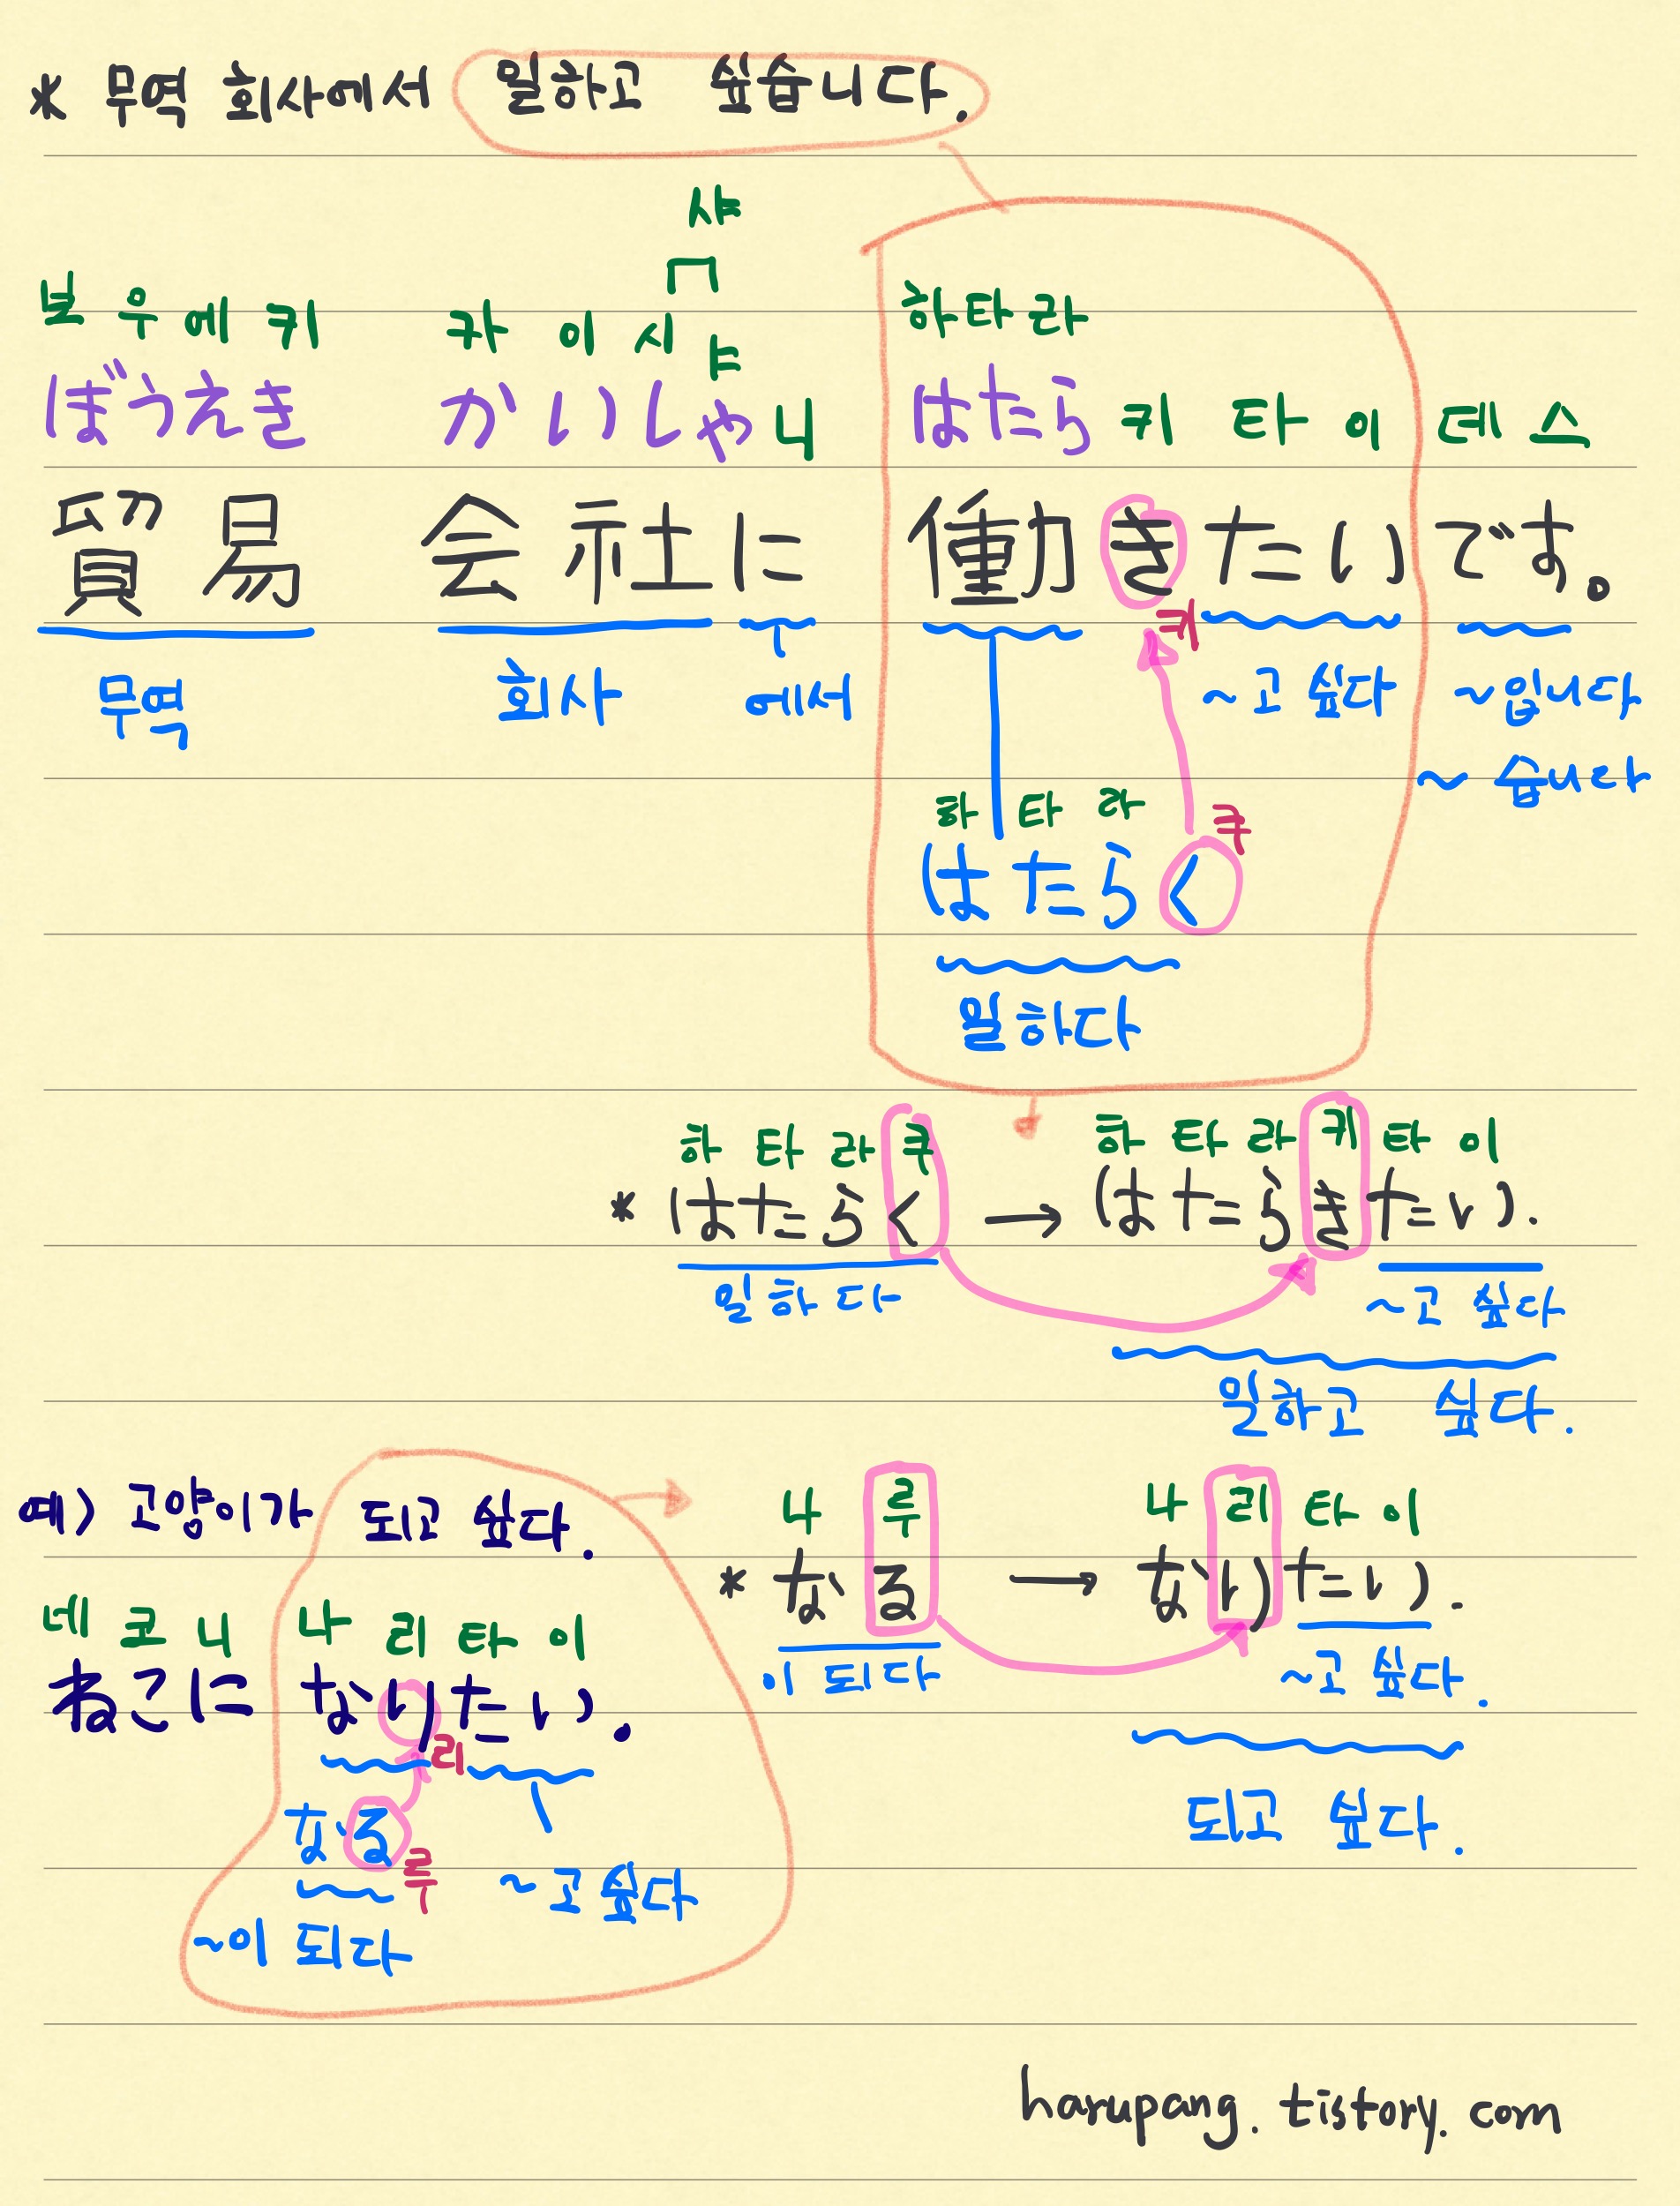 * 무역 회사에서 일하고 싶습니다.
샤
보우에키 카이시ㅑ 하타라
ぼうえき かいしゃ니 はたら키타이데스
貿易 会社に 働きたいです。
키
무역 회사 에서 ~고 싶다 ~입니다
~습니다
하타라 쿠
はたらく
일하다
하타라쿠 하타라키타이
* はたらく → はたらきたい.
일하다 ~고 싶다
일하고 싶다.
예) 고양이가 되고 싶다.
나루 나리타이
* なる → なりたい.
이 되다 ~고 싶다.
되고 싶다.
네코니 나리타이
ねこに なりたい.
리
なる
루
~고 싶다
~이 되다
harupang.tistory.com